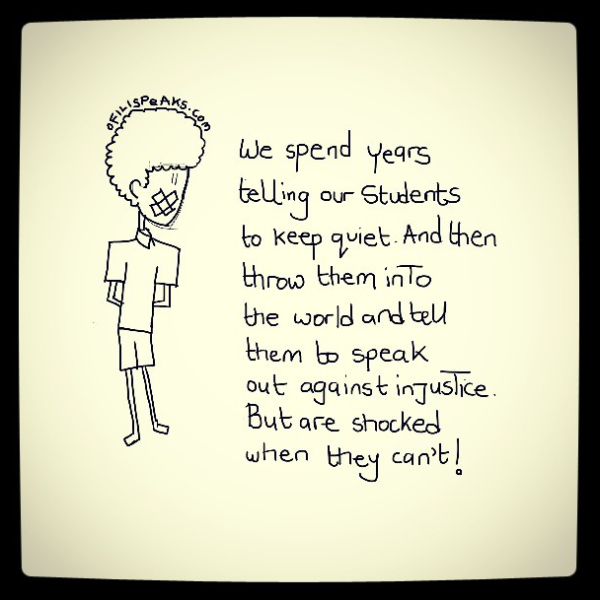 oFiLisPeAKS.com
We spend years
telling our Students
to keep quiet. And then
throw them inTo
the world and tell
them to speak
out against injusTice.
But are shocked
when they can't!